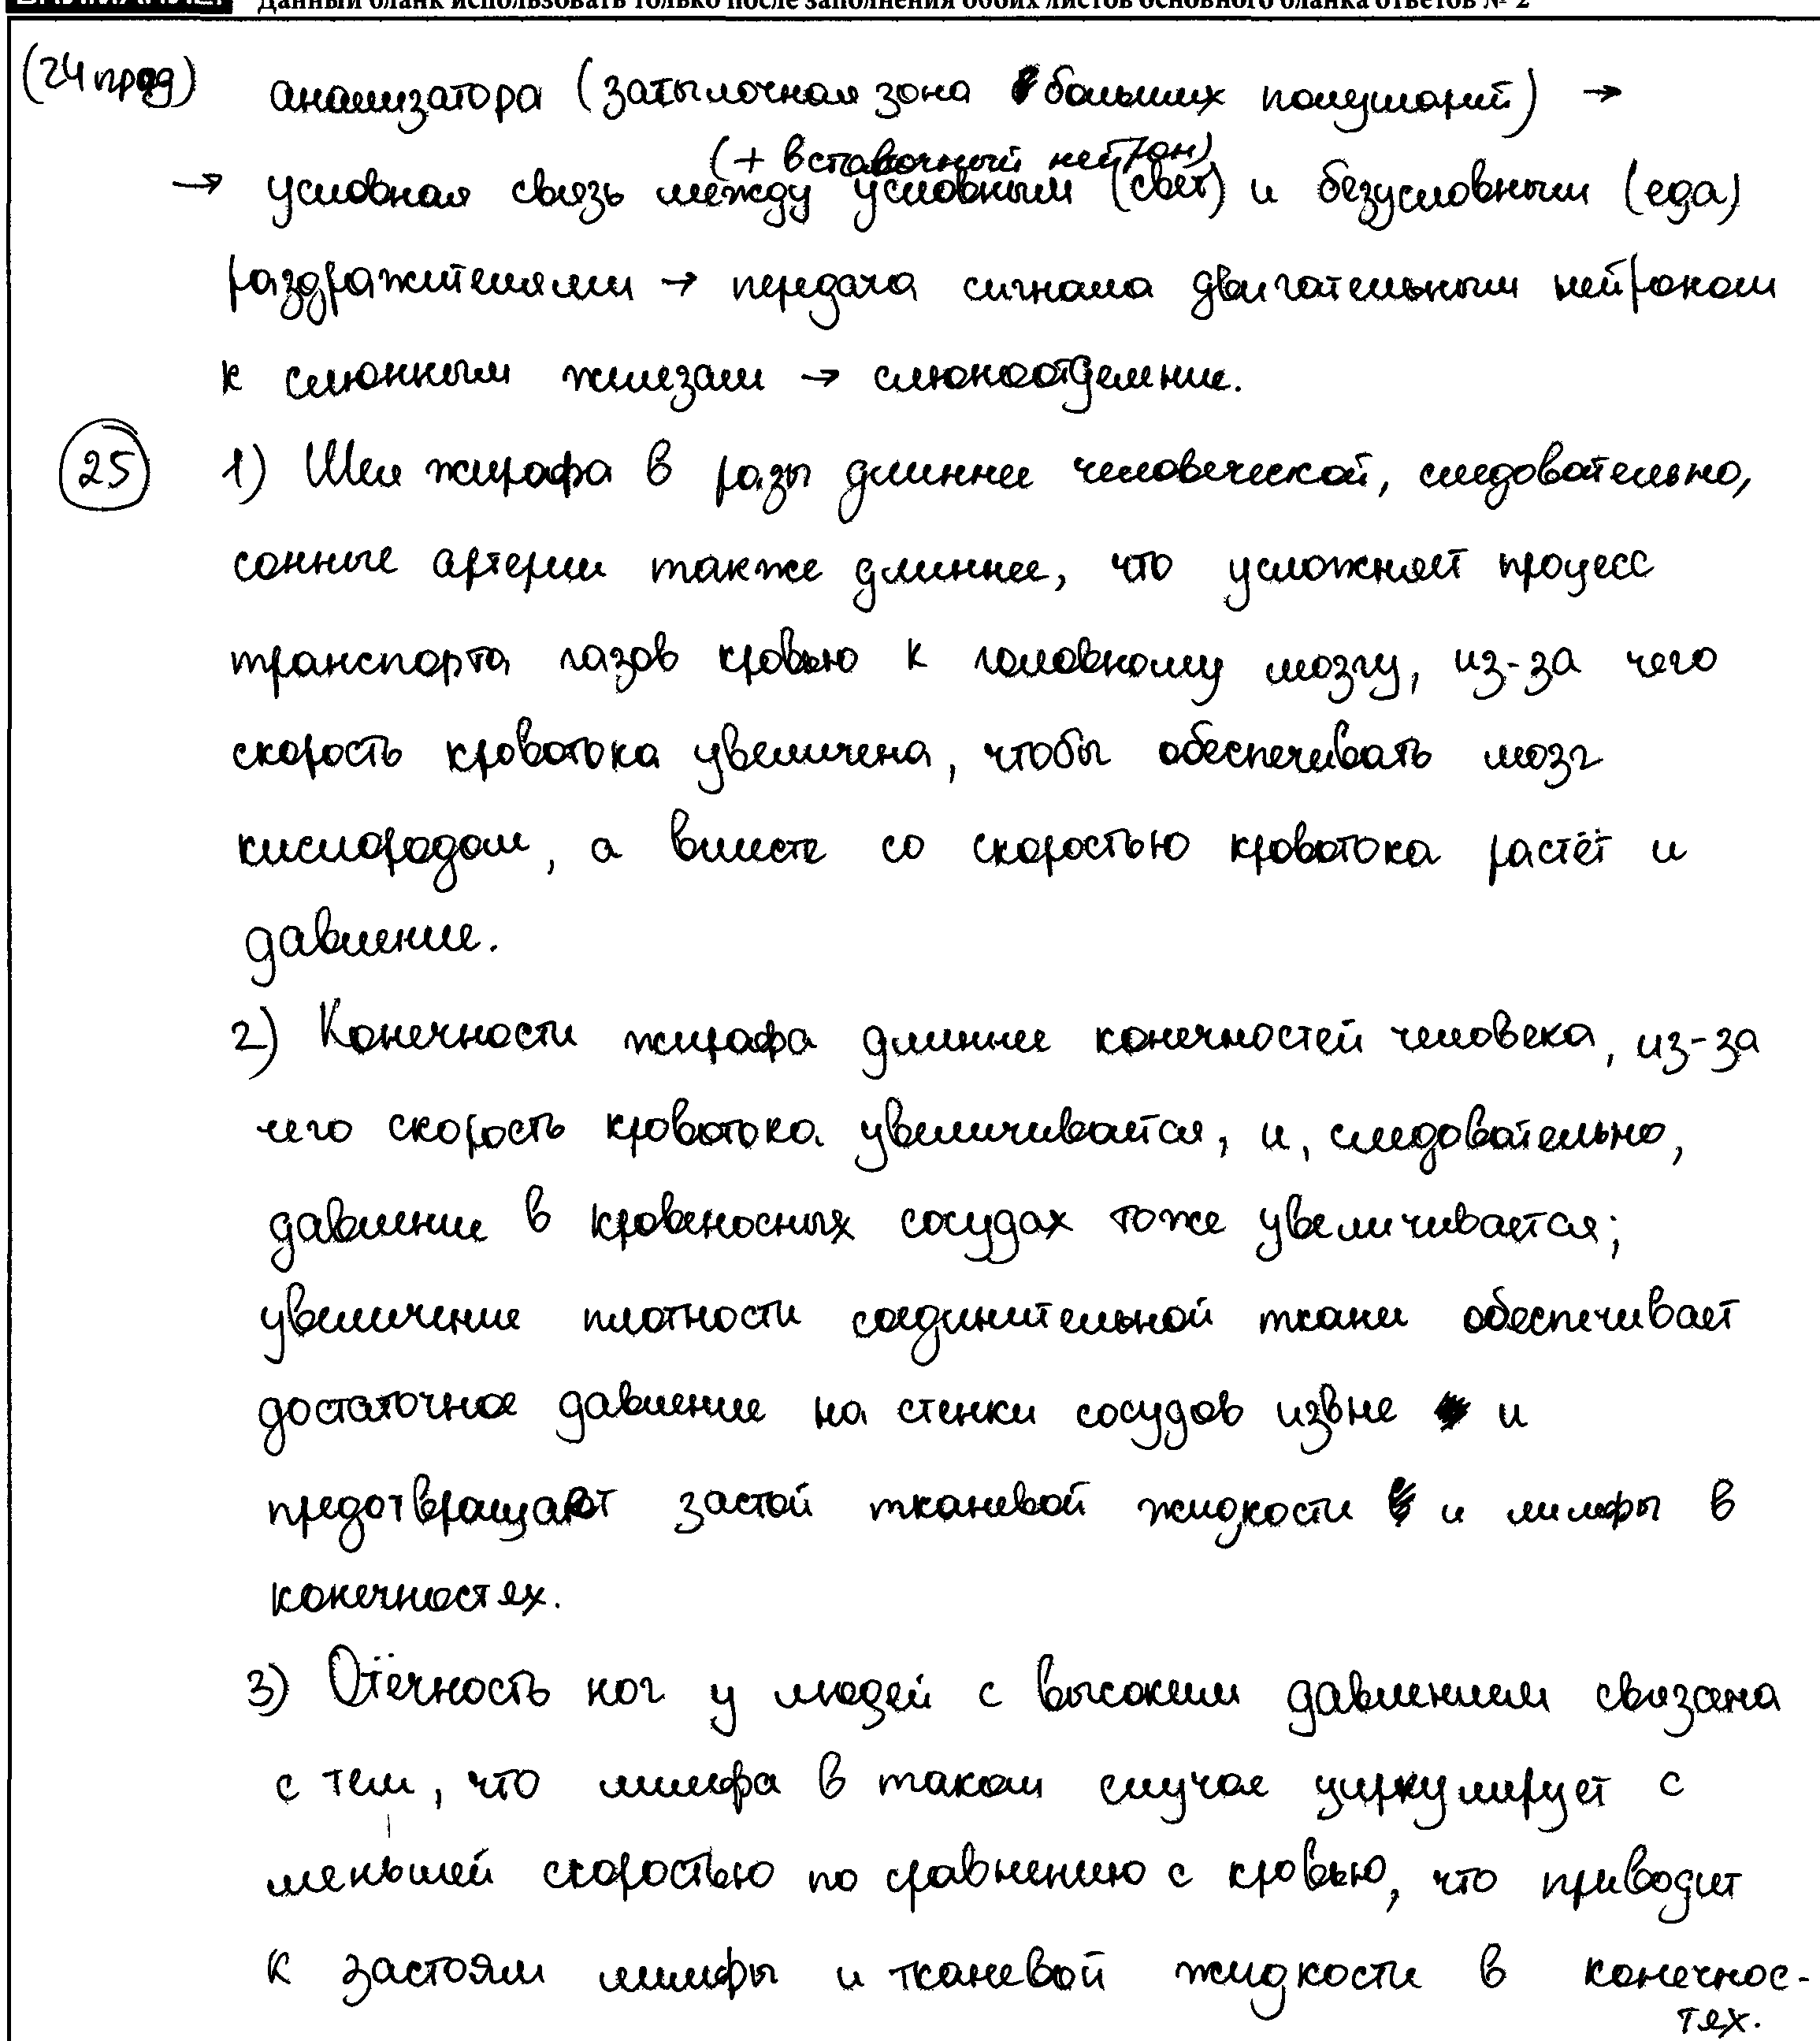 Данный бланк использовать только после заполнения обоих листов основного бланка ответов № 2
(24 прод) анализатора (затылочная зона больших полушарий) →
(+ вставочный нейрон)
→ условная связь между условным (свет) и безусловным (еда)
раздражителями → передача сигнала двигательным нейроном
к слюнным железам → слюноотделение.
25 1) Шея жирафа в разы длиннее человеческой, следовательно,
сонные артерии также длиннее, что усложняет процесс
транспорта газов кровью к головному мозгу, из-за чего
скорость кровотока увеличена, чтобы обеспечивать мозг
кислородом, а вместе со скоростью кровотока растёт и
давление.
2) Конечности жирафа длиннее конечностей человека, из-за
чего скорость кровотока увеличивается, и, следовательно,
давление в кровеносных сосудах тоже увеличивается;
увеличение плотности соединительной ткани обеспечивает
достаточное давление на стенки сосудов извне и
предотвращает застой тканевой жидкости и лимфы в
конечностях.
3) Отёчность ног у людей с высоким давлением связана
с тем, что лимфа в таком случае циркулирует с
меньшей скоростью по сравнению с кровью, что приводит
к застоям лимфы и тканевой жидкости в конечнос-
тях.